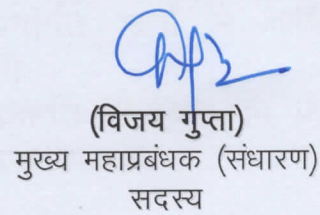 (विजय गुप्ता)
मुख्य महाप्रबंधक (संधारण)
सदस्य